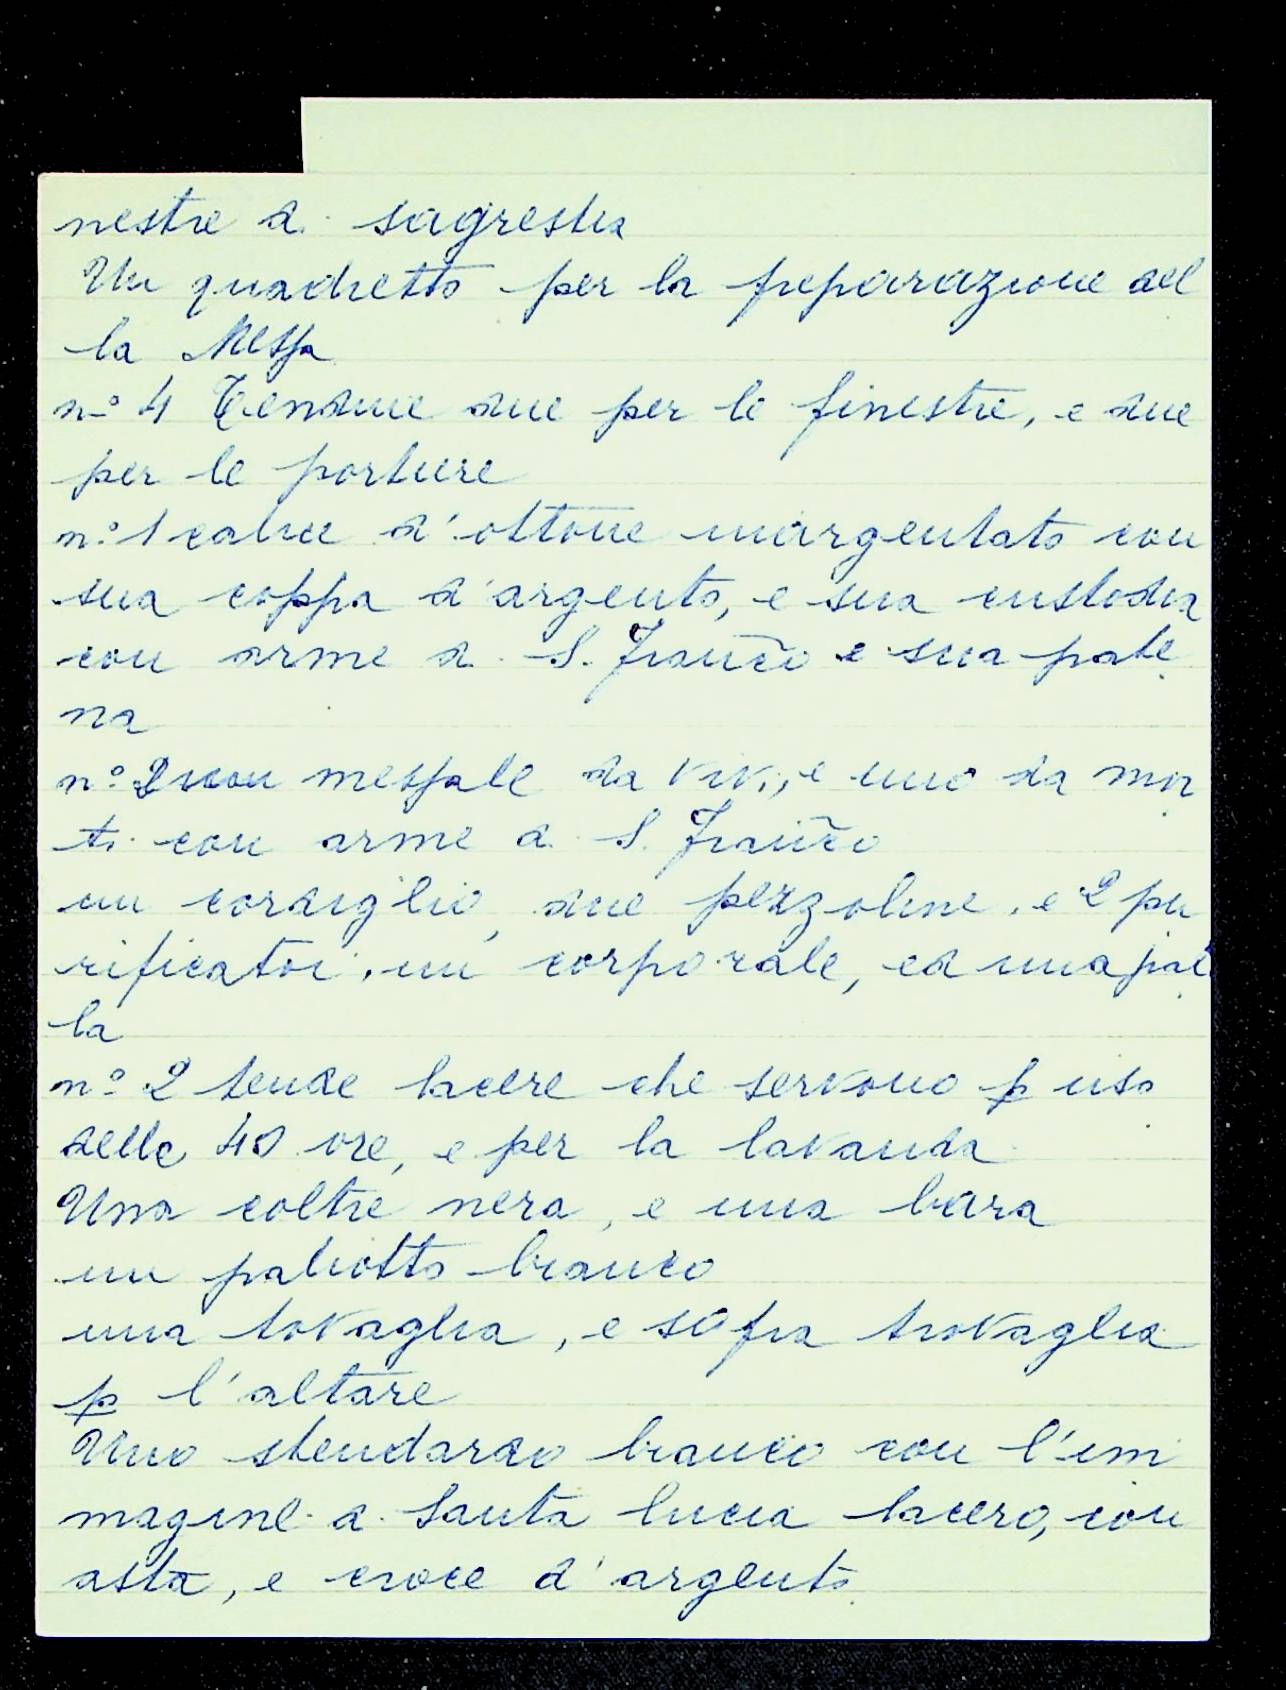 nestre di sagrestia
Un quadretto per la preparazione del
la Messa
n.º 4 Tendine due per le finestre, e due
per le portiere
n.º 1 calice d'ottone inargentato con
sua coppa d'argento, e sua custodia
con arme di S. Franco e sua pate
na
n.º 2 messale da vivi, e uno da mor
ti con arme di S. Franco
un cordiglio, due pezzoline, e 2 pu
rificatoi, un corporale, ed una pal
la
n.º 2 tende lacere che servono p uso
delle 40 ore, e per la lavanda
Una coltre nera, e una bara
un paliotto bianco
una tovaglia, e sopra tovaglia
p l'altare
Uno stendardo bianco con l'im
magine di Santa Lucia lacero, con
asta, e croce d'argento